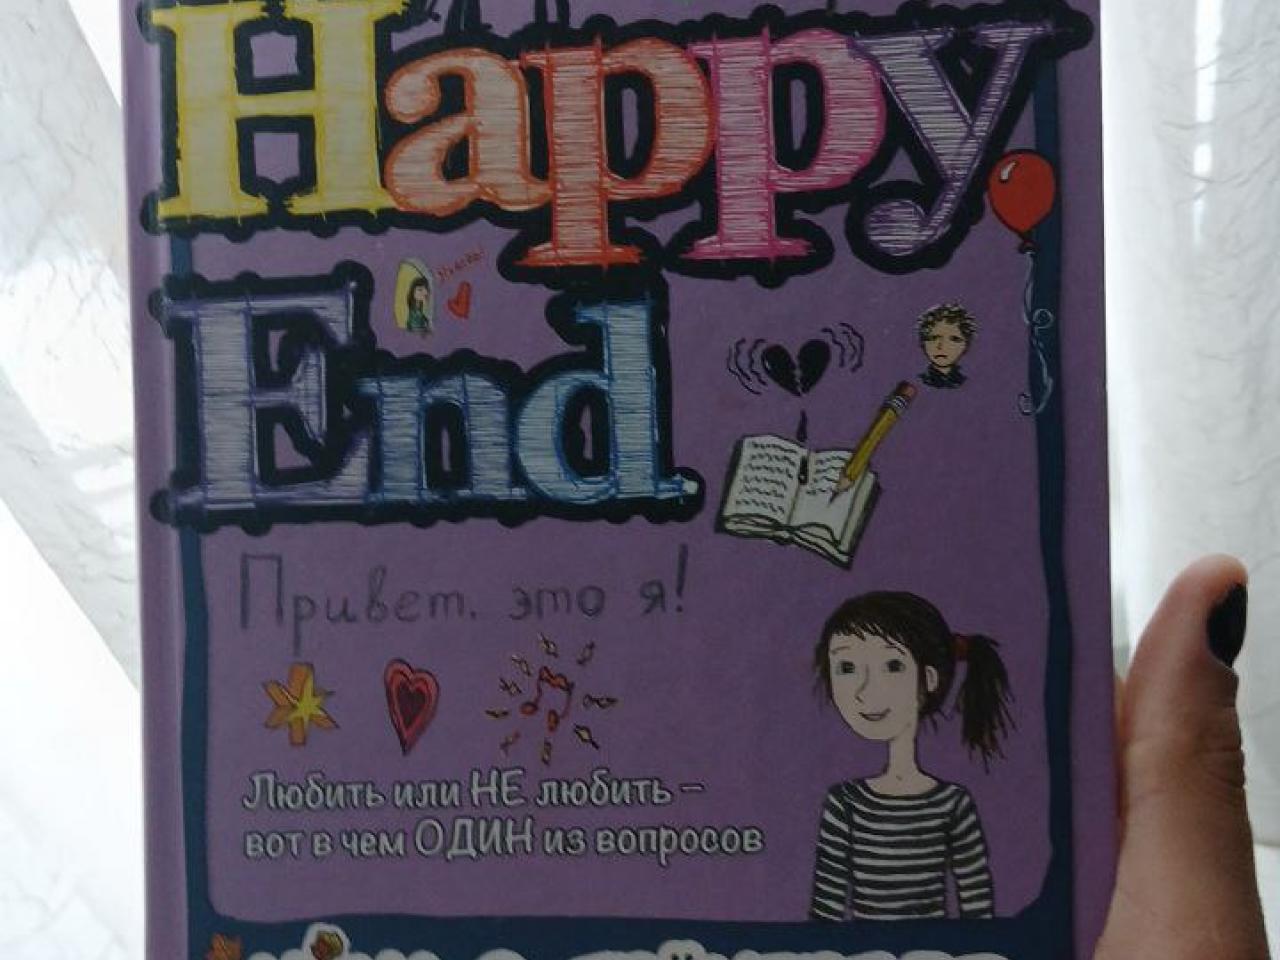 Happy
End
Привет. это я!
Любить или НЕ любить –
вот в чем ОДИН из вопросов